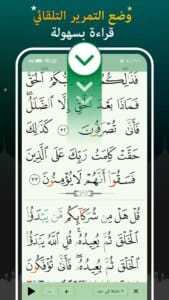 وضع التمرير التلقائي
قراءة بسهولة
ٱلْحَقُّ
فَمَاذَا بَعْدَ ٱلْحَقِّ إِلَّا ٱلضَّلَٰلُ
فَأَنَّىٰ تُصْرَفُونَ ٣٢ كَذَٰلِكَ
حَقَّتْ كَلِمَتُ رَبِّكَ عَلَى ٱلَّذِينَ
فَسَقُوٓا۟ أَنَّهُمْ لَا يُؤْمِنُونَ ٣٣
قُلْ هَلْ مِن شُرَكَآئِكُم مَّن يَبْدَؤُا۟
ٱلْخَلْقَ ثُمَّ يُعِيدُهُۥ قُلِ ٱللَّهُ يَبْدَؤُا۟
ٱلْخَلْقَ ثُمَّ يُعِيدُهُۥ فَأَنَّىٰ